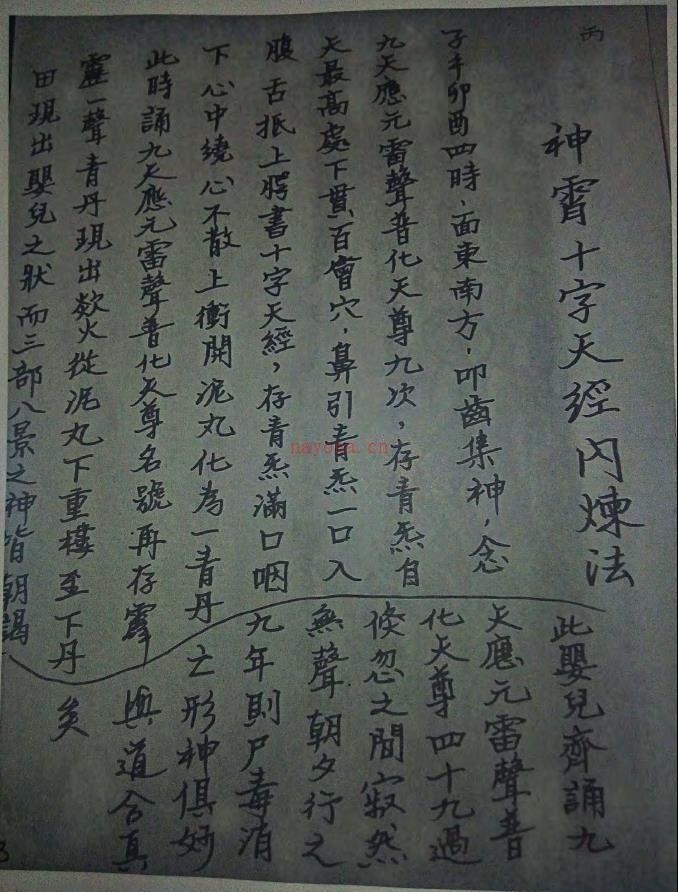 丙
神霄十字天經內煉法
子午卯酉四時，面東南方，叩齒集神，念
九天應元雷聲普化天尊九次，存青炁自
天最高處下貫百會穴，鼻引青炁一口入
腹舌抵上腭書十字天經，存青炁滿口咽
下心中繞心不散上衝開泥丸化為一青丹
此時誦九天應元雷聲普化天尊名號再存霹
靂一聲青丹現出欻火從泥丸下重樓至下丹
田現出嬰兒之狀而三部八景之神皆朝謁
此嬰兒齊誦九
天應元雷聲普
化天尊四十九過
倏忽之間寂然
無聲朝夕行之
九年則尸毒消
亡形神俱妙
與道合真
矣
nayona.cn
3